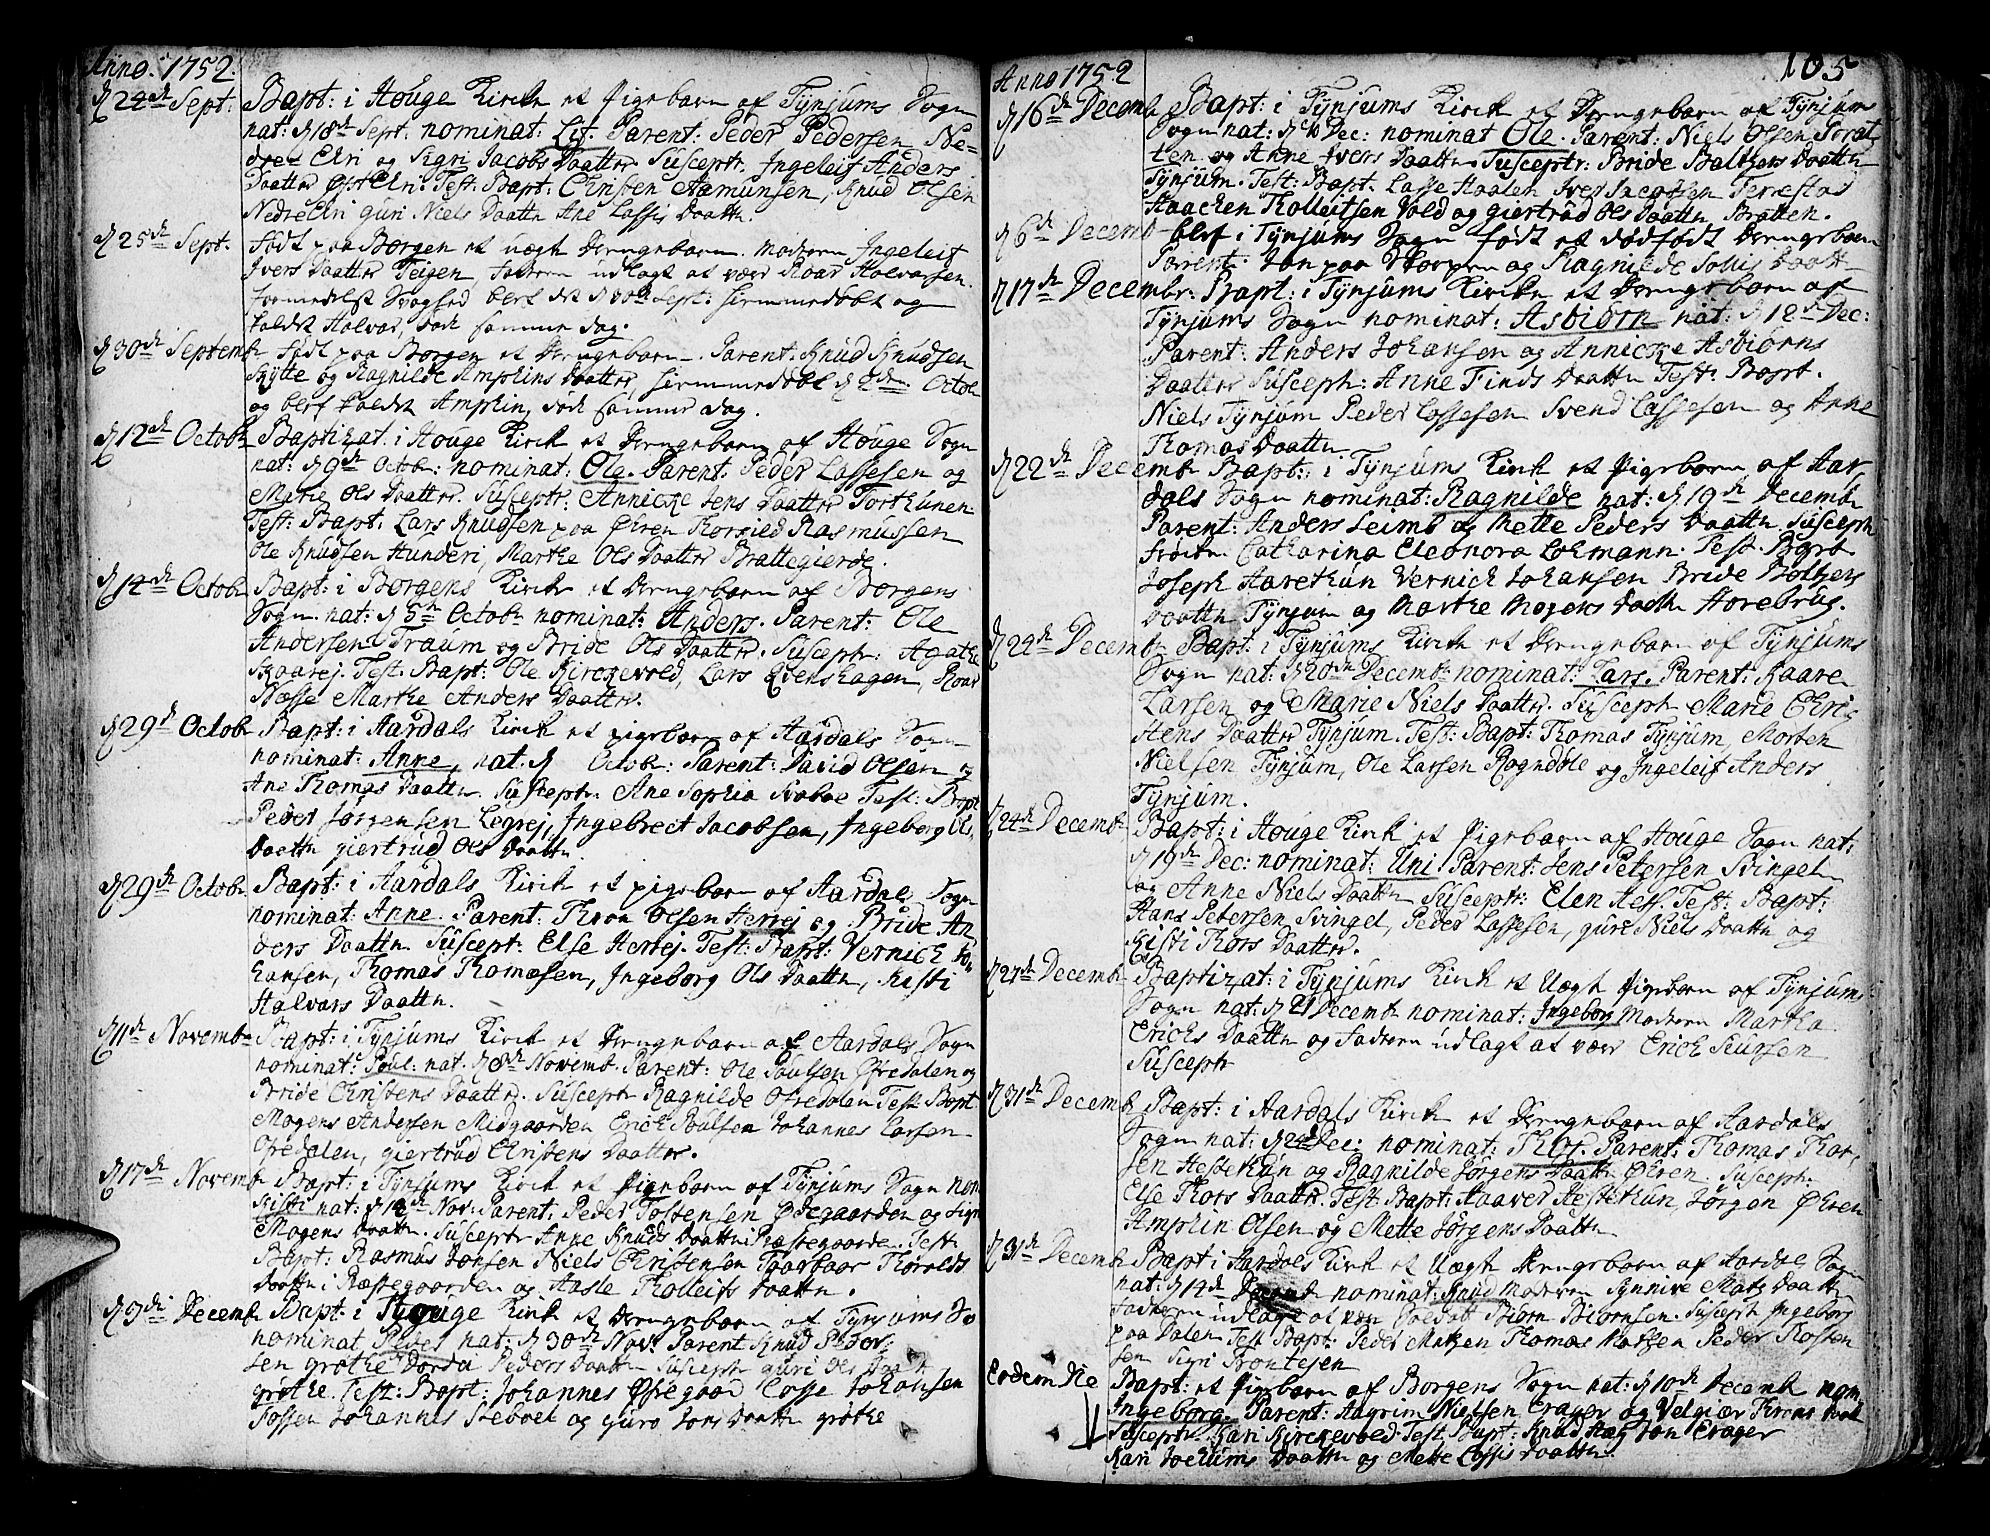 Anno. 1752.
d 24de Sept: Bapt: i Houge Kirke et Pigebarn af Tynjums Sogn
nat: d 18de Sept. nominat: Lif. Parent: Peder Pedersen Ne-
dre Elri og Sigri Jacobs Daatter Susceptr. Ingeleif Anders
Daatter Test: Bapt: Christen Aamunsen, Knud Olsen
Nedre Elri Guri Niels Daattr Ane Lassis Daattr.
d 25de Sept. født paa Borgen et uægt Drengebarn. Moderen Ingeleif
Ivers Daatter Teigen, Faderen udlagt at være Roar Halvorsen.
formedelst Svaghed blef det d 30te Sept: hiemmedøbt og
kaldet Halvar, døde samme dag.
d 30de Septemb. født paa Borgen et Drengebarn. Parent. Knud Knudsen
Skytte og Ragnilde Amphins Daatter, hiemmedøbt d 2den Octobr
og blef kaldet Amphin, døde samme dag.
d 12de Octobr Baptizat. i Houge Kirke et Drengebarn af Houge Sogn
nat: d 9de Octobr: nominat: Ole. Parent: Peder Lassesen og
Marie Ols Daatter. Susceptr: Annicke Jens Daatter Torthunen
Test: Bapt: Lars Knudsen paa Øhren Thorsied Rasmussen
Ole Knudsen Hunderi, Marthe Ols Daatter Brattegierde.
d 14de Octobr Bapt: i Borgens Kirke et Drengebarn af Borgens
Sogn. nat: d 5te Octobr nominat: Anders. Parent: Ole
Andersen Traum og Bride Ols Daatter. Susceptr: Agathe
Skaarej. Test. Bapt: Ole Kirckevold, Lars Qvenshagen, Roar
Næsse Marthe Anders Daatter.
d 29de Octobr Bapt: i Aardals Kirke et pigebarn af Aardals Sogn
nominat: Anne, nat. d Octobr: Parent: David Olsen og
Ane Thomas Daattr. Susceptr. Ane Sophia Test: Bapt
Peder Jørgensen Legrej, Ingebrect Jacobsen, Ingeborg Ols
Daattr giertrud Ols Daattr
d 29de Octobr Bapt: i Aardals Kirke et pigebarn af Aardals Sogn
nominat: Anne. Parent: Thron Olsen Herrej og Bride An-
ders Daattr. Suscept: Else Herrej. Test: Bapt: Vernich Jo-
hansen, Thomas Thomæsen, Ingeborg Ols Daattr, Kisti
Halvars Daattr.
d 11de Novembr Bapt: i Tynjums Kirke et Drengebarn af Aardals Sogn
nominat: Poul: nat. d 8de Novemb. Parent: Ole Poulsen Øfredalen og
Bride Christens Daatter. Susceptr Ragnilde Ofredalen Test. Bapt
Mogens Andersen Midgaarden Erich Poulsen Johannes Larsen
Ofredalen, giertrud Christens Daatter.
d 17de Novemb Bapt: i Tynjums Kirke et Pigebarn af Tynjums Sogn nom
Kisti nat: d 12de Nov: Parent: Peder Tostensen Ødegaarden og Sigri
Mogens Daattr. Susceptr Anne Knuds Daattr Præstegaarden. Test:
Bapt: Rasmus Jonsen Niels Christensen Thoralds
Daattr i Præstegaarden og Aasle Tholleifs Daattr.
d 3die Decemb Bapt: i Houge Kirke et Drengebarn af Tynjums So
nominat, Peder nat: d 30de Nov: Parent Knud
sen grøthe Dorda Peders Daattr Susceptr guri Ols Daattr
grøthe. Test: Bapt: Johannes Øfregaar Lasse Johansen
Fossen Johannes og guro Jons Daattr grøthe
105
Anno 1752
d 16de Decemb Bapt: i Tynjums Kirke et Drengebarn af Tynjums
Sogn nat: d 10 Dec: nominat Ole. Parent: Niels Olsen
ten og Anne Ivers Daattr. Susceptr: Bride Balthzers Daattr
Tynjum. Test: Bapt. Lasse Haalen Iver Jacobsen Terrestas
Haachen Tholleifsen Vold og giertrud Ols Daattr Bratten.
d 6de Decemb blef i Tynjums Sogn født et dødfødt Drengebarn
Parent: Jon paa og Ragnilde Daatt
d 17de Decembr. Bapt: i Tynjums Kirke et Drengebarn af
Tynjums Sogn nominat: Asbiørn nat: d 12de Dec:
Parent: Anders Johansen og Annicke Asbiørns
Daatter Susceptr: Anne Finds Daattr Test: Bapt.
Niels Tynjum Peder Lassesen Svend Lassesen og Anne
Thomas Daattr.
d 22de Decembr Bapt: i Tynjums Kirke et Pigebarn af Aar-
dals Sogn nominat: Ragnilde nat: d 19de Decembr
Parent: Anders Leimb og Mette Peders Daattr Susceptr
Catharina Eleonora Lohmann. Test. Bapt
Joseph Aarethun Vernich Johansen Bride Baltzers
Daattr Tynjum og Marthe Mogens Daattr Horebrug.
d 22de Decembr Bapt: i Tynjums Kirke et Drengebarn af Tynjums
Sogn nat: d 20de Decembr nominat: Lars. Parent: Kaare
Larsen og Marie Niels Daatter. Susceptr Marie Chri-
stens Daatter Tynjum. Test: Bapt: Thomas Tynjum, Morten
Nielsen Tynjum, Ole Larsen Rogndøle og Ingeleif Anders
Tynjum.
d 24de Decembr Bapt: i Houge Kirke et Pigebarn af Houge Sogn nat:
d 19de Dec: nominat: Uni. Parent: Jens Petersen Svingel
og Anne Niels Daattr Susceptr: Elen Hess. Test: Bapt:
Hans Petersen Svingel, Peder Lassesen, gure Niels Daattr og
Kisti Thors Daatter.
d 27de Decembr Baptizat: i Tynjums Kirke et Uægt Pigebarn af Tynjums
Sogn nat: d 21 Decembr nominat: Ingeborg Moderen Martha
Erichs Daattr og Faderen udlagt at være Erich Siursen
Susceptr
d 31de Decemb Bapt: i Aardals Kirke et Drengebarn af Aardals
Sogn nat: d 24de Dec: nominat: Thor. Parent: Thomas Thor-
sen Hestethun og Ragnilde Jørgens Daattr Øhren. Susceptr:
Else Thors Daatter. Test. Bapt: Haaver Hestethun, Jørgen Øhren
Amphin Olsen og Mette Jørgens Daattr
d 31de Decembr Bapt i Aardals Kirke et Uægt Drengebarn af Aardals Sogn
nat: d 14de Decemb nominat: Knud Moderen Synnive Mats Daattr
Faderen udlagt at være Soldat Biørn Biørnsen. Susceptr Ingeborg
paa Dalen. Test Bapt: Peder Matsen Thomas Matsen Peder Thosten
sen Sigri Trontejen
Eodem Die Bapt: et Pigebarn af Borgens Sogn nat: d 10de Decemb nom
Ingeborg. Parent: Aagrim Nielsen Crager og Velgiær Throns Daat
Susceptr Kari Kirckevold. Test. Bapt: Knud Jon Crager
Kari Jochums Daattr og Mette Lassis Daattr.